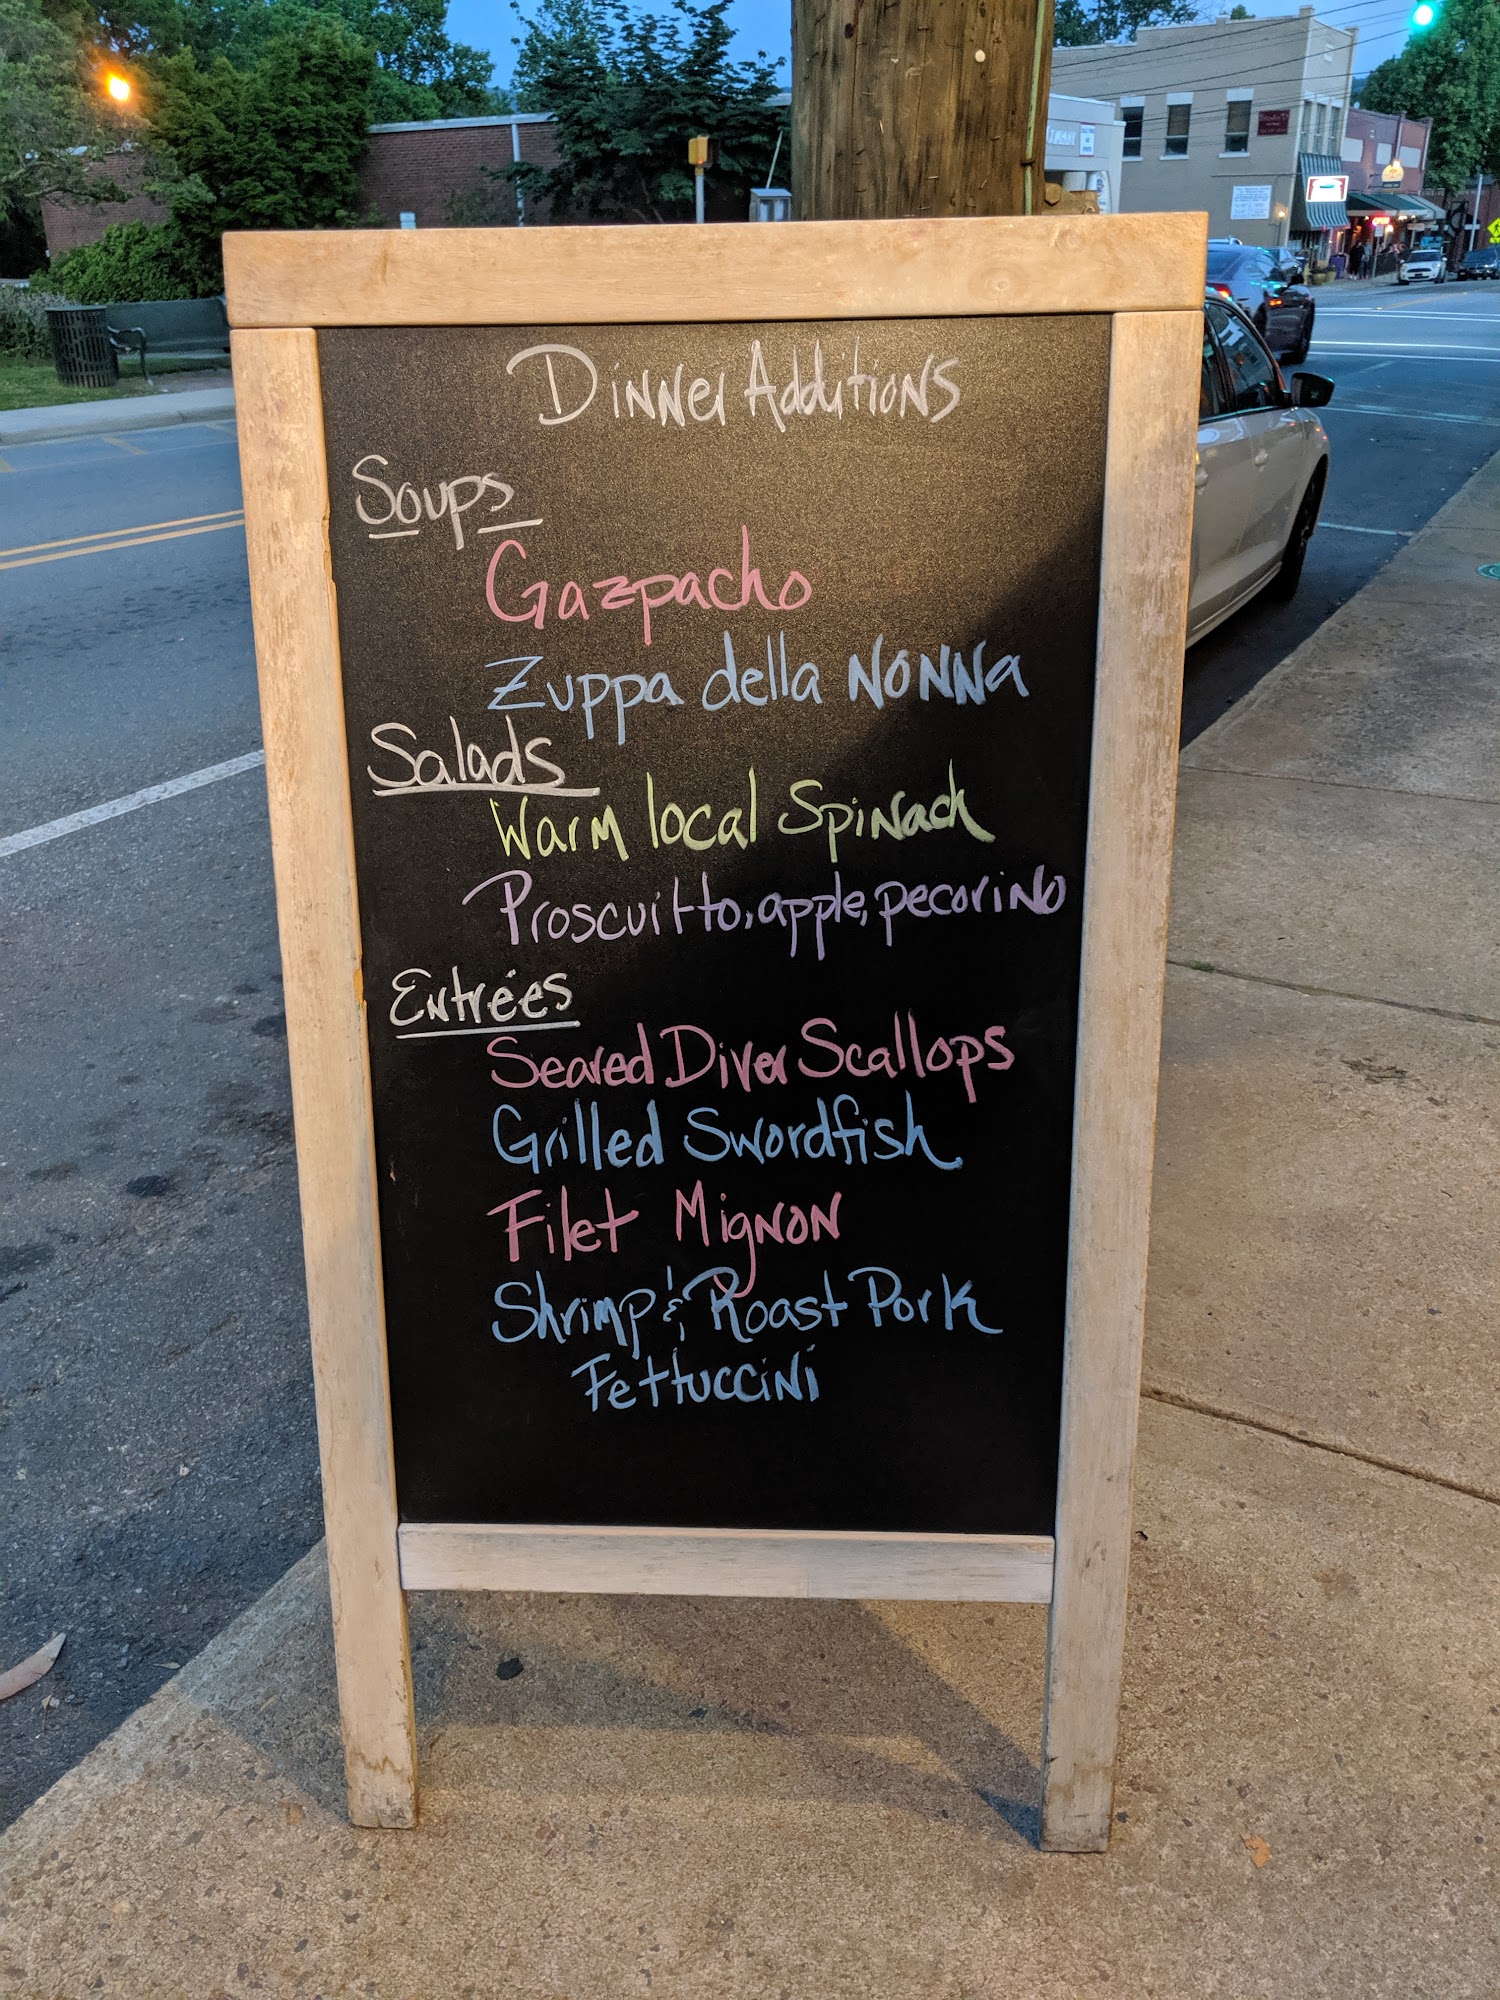 Dinner Additions
Soups
Gazpacho
Zuppa della Nonna
Salads
Warm local Spinach
Proscuitto, apple, pecorino
Entrées
Seared Diver Scallops
Grilled Swordfish
Filet Mignon
Shrimp & Roast Pork
Fettuccini
OPEN